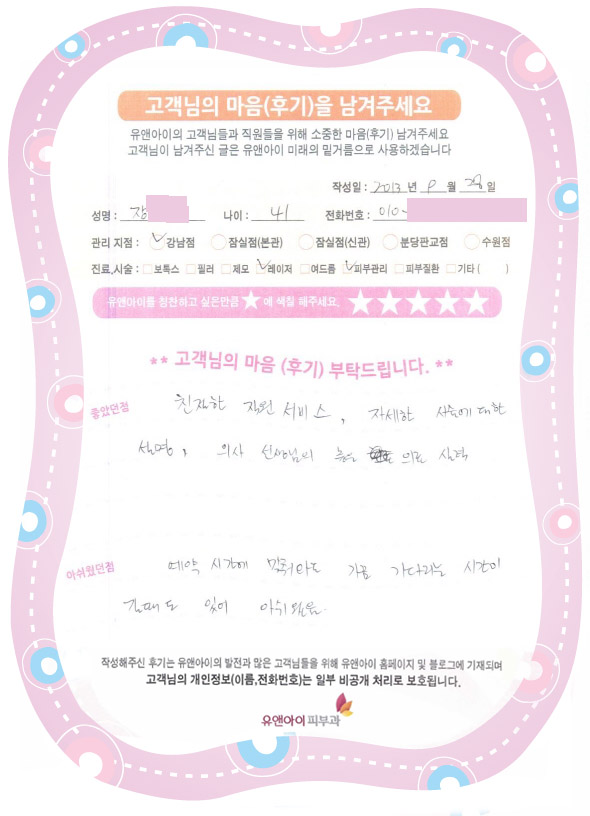 고객님의 마음(후기)을 남겨주세요
유앤아이의 고객님들과 직원들을 위해 소중한 마음(후기) 남겨주세요
고객님이 남겨주신 글은 유앤아이 미래의 밑거름으로 사용하겠습니다
작성일 : 2013 년 9 월 28 일
성명 : 장 나이 : 41 전화번호 : 010-
관리 지점 : 강남점 잠실점(본관) 잠실점(신관) 분당판교점 수원점
진료,시술 : 보톡스 필러 제모 레이저 여드름 피부관리 피부질환 기타 ( )
유앤아이를 칭찬하고 싶은만큼 ★ 에 색칠 해주세요. ★★★★★
** 고객님의 마음 (후기) 부탁드립니다. **
좋았던점 친절한 직원 서비스, 자세한 시술에 대한
설명, 의사 선생님의 높은 의료 실력
아쉬웠던점 예약 시간에 맞춰와도 가끔 기다리는 시간이
길때도 있어 아쉬웠음.
작성해주신 후기는 유앤아이의 발전과 많은 고객님들을 위해 유앤아이 홈페이지 및 블로그에 기재되며
고객님의 개인정보(이름,전화번호)는 일부 비공개 처리로 보호됩니다.
유앤아이 피부과